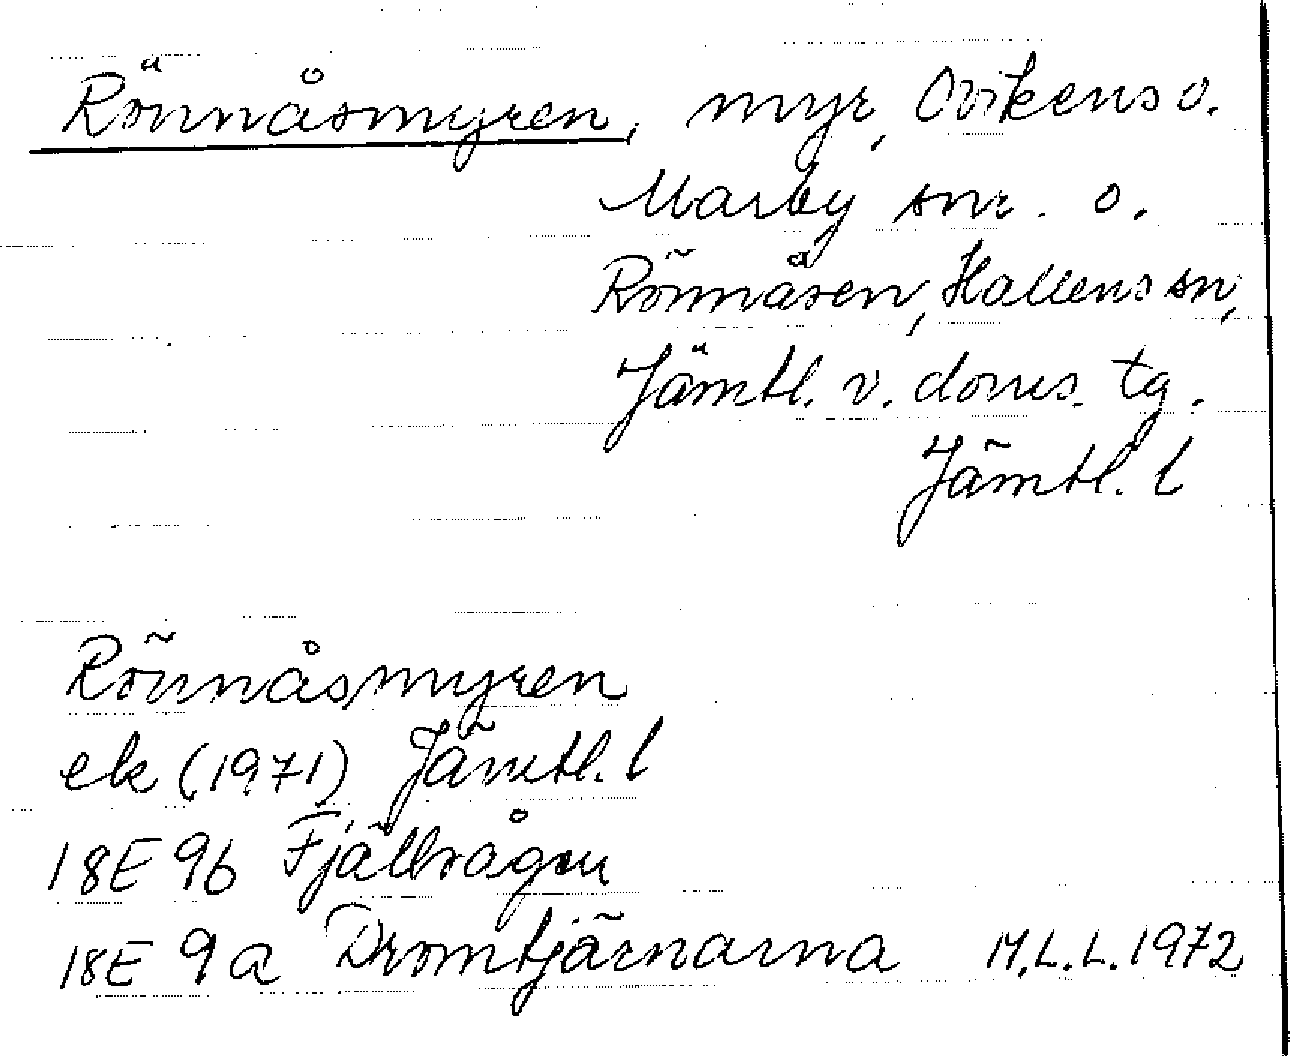 Rönnåsmyren, myr, Ovikens o.
Marby snr. o.
Rönnåsen, Hallens sn,
Jämtl. v. doms. tg.
Jämtl. l
Rönnåsmyren
ek (1971) Jämtl. l
18E 9b Fjällvågen
18E 9a Dromtjärnarna M.L.L. 1972